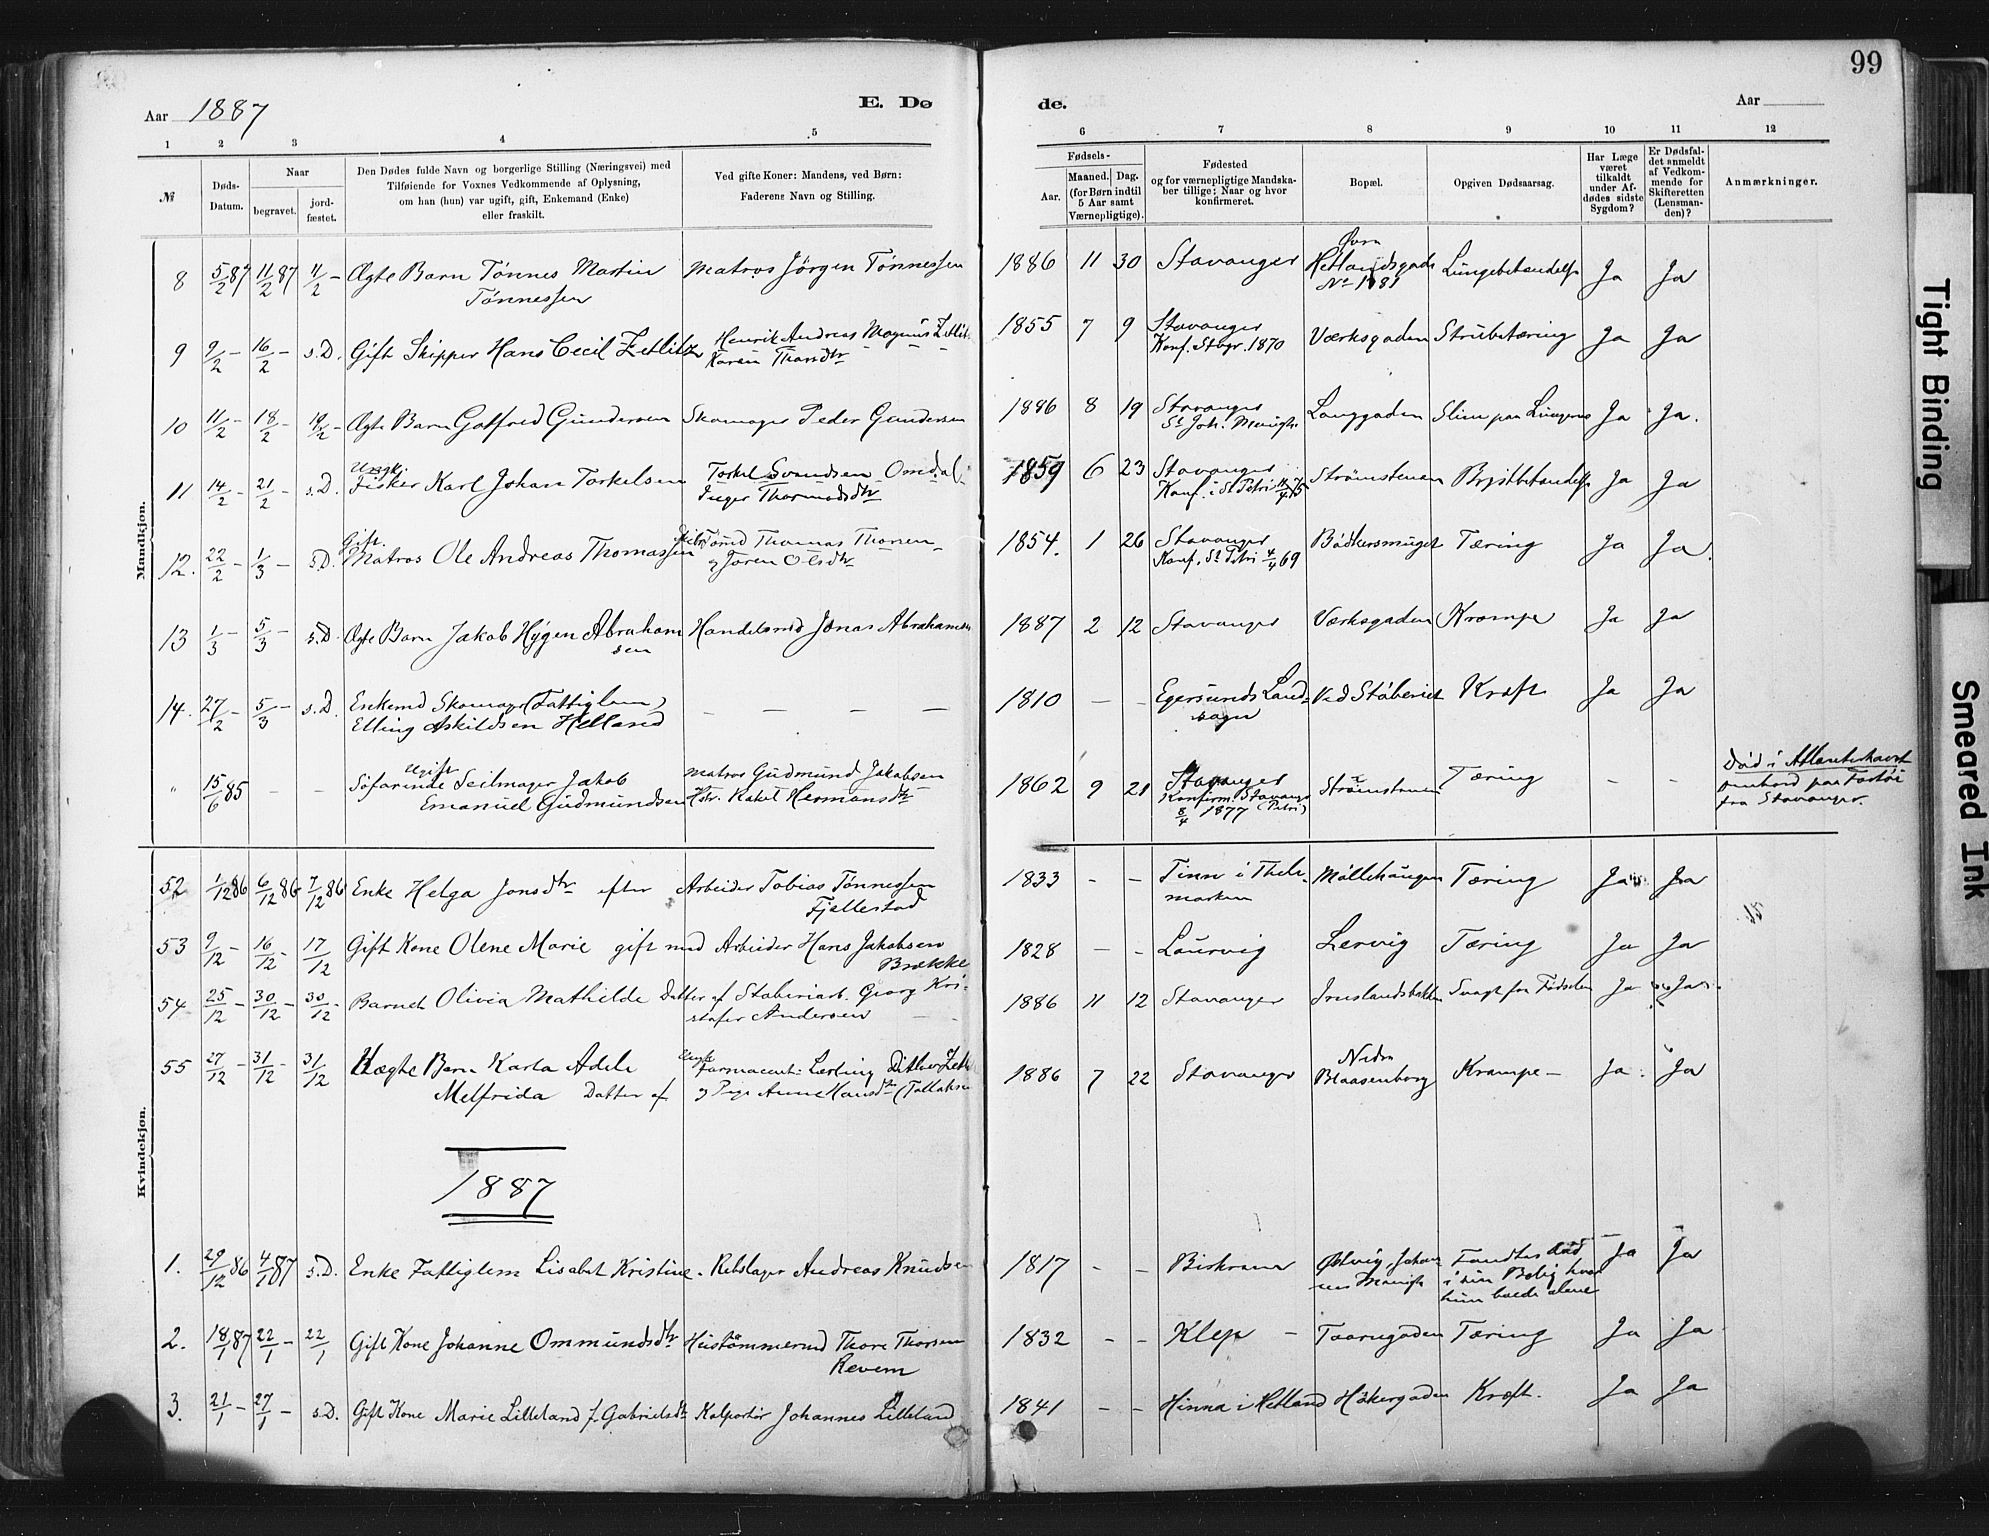 99
Aar 1887
E. Dø
de.
Aar
1 2 3 4 5 6 7 8 9 10 11 12
№
Døds-Datum.
Naar
begravet.
jord-fæstet.
Den Dødes fulde Navn og borgerlige Stilling (Næringsvei) med
Tilføiende for Voxnes Vedkommende af Oplysning,
om han (hun) var ugift, gift, Enkemand (Enke)
eller fraskilt.
Ved gifte Koner: Mandens, ved Børn:
Faderens Navn og Stilling.
Fødsels-
Aar.
Maaned. Dag.
(for Børn indtil
5 Aar samt
Værnepligtige).
Fødested
og for værnepligtige Mandska-
ber tillige: Naar og hvor
konfirmeret.
Bopæl.
Opgiven Dødsaarsag.
Har Læge
været
tilkaldt
under Af-
dødes sidste
Sygdom?
Er Dødsfal-
det anmeldt
af Vedkom-
mende for
Skifteretten
(Lensman-
den)?
Anmærkninger.
Mandkjøn.
8 5/2 87 11/2 87 11/2 - Ægte Barn Tønnes Martin Matros Jörgen Tönnessen 1886 11 30 Stavanger Øvre Lungebetændelse Ja Ja
Tønnessen Hetlandsgade
9 9/2 - 16/2 - s.D. Gift Skipper Hans Cecil Zetlitz Henrik Andreas Magnus 1855 7 9 Stavanger Værksgaden Strubetæring Ja Ja
Karen Thorsdtr Konf. Stvgr. 1870
10 11/2 - 18/2 - 19/2 - Ægte Barn Gotfred Gundersen Skomager Peder Gundersen 1886 8 19 Stavanger Langgaden Slim paa Lungerne Ja Ja.
St Joh. Menigh.
11 14/2 - 21/2 - s.D. Ungk. Fisker Karl Johan Torkelsen Torkel Svendsen Omdal 1859 6 23 Stavanger Strømstenen Brystbetændelse Ja Ja
Inger Thormodsdtr Konf. i St Petri 11/4 75
12. 22/2 - 1/3 - s.D. Gift. Matros Ole Andreas Thomassen Thomas 1854. 1 26 Stavanger Bødkersmuget Tæring Ja Ja.
Olsdtr Konf. St Petri 4/4 69
13 1/3 - 5/3 - s.D. Ægte Barn Jakob Hygen Abraham Handelsmd Jonas Abrahamsen 1887 2 12 Stavanger Værksgaden Krampe Ja Ja
sen
14. 27/2 - 5/3 - s.D. Enkemd Skomager (Fattiglem) - - - - 1810 - - Egersunds Land- Ved Støberiet Kræft Ja Ja
Elling Askildsen Helland sogn
" 15/6 85 - - Søfarende ugift Seilmager Jakob Matros Gudmund Jakobsen 1862 9 21 Stavanger Strømstenen Tæring - - Død i Atlanterhavet
Emanuel Gudmundsen Hstr. Rakel Hermansdtr Konfirm. Stavanger ombord paa
8/4 1877 (Petri) fra Stavanger.
Kvindekjøn.
52 1/12 86 6/12 86 7/12 86 Enke Helga Jonsdtr efter Arbeider Tobias Tønnessen 1833 - - Tinn i Thele- Møllehaugen Tæring Ja Ja
Fjellestad marken
53 9/12 - 16/12 - 17/12 Gift Kone Olene Marie gift med Arbeider Hans Jakobsen 1828 - - Laurvig Lervig Tæring Ja Ja
Brække
54 25/12 - 30/12 - 30/12 - Barnet Olivia Mathilde Datter af Støberiarb. Georg Kri- 1886 11 12 Stavanger Svagt fra Fødselen Ja Ja
stofer Andersen
55 27/12 - 31/12 - 31/12 Uægte Barn Karla Adele Ungk Farmaceut: Lærling 1886 7 22 Stavanger Nedre Krampe - Ja Ja
Melfrida Datter af og Pige Anne Hansdtr Blaasenborg
1887
1. 29/12 86 4/1 87 s.D. Enke Fattiglem Lisabet Kristine - Rebslager Andreas Knudsen 1817 - - Birkrem Fandtes død Ja Ja
i sin Bolig hvor
hun boede alene
2. 18/1 87 22/1 - 22/1 Gift Kone Johanne Ommundsdtr Hustømmermd Thore Thorsen 1832 - - Klep - Taarngaden Tæring Ja Ja
Revem
3. 21/1 - 27/1 - s.D. Gift Kone Marie Lilleland f. Gabrielsdtr Kolportør Johannes Lilleland 1841 - - Hinna i Hetland Høkergaden Kræft. Ja Ja
Tight Binding
Smeared Ink